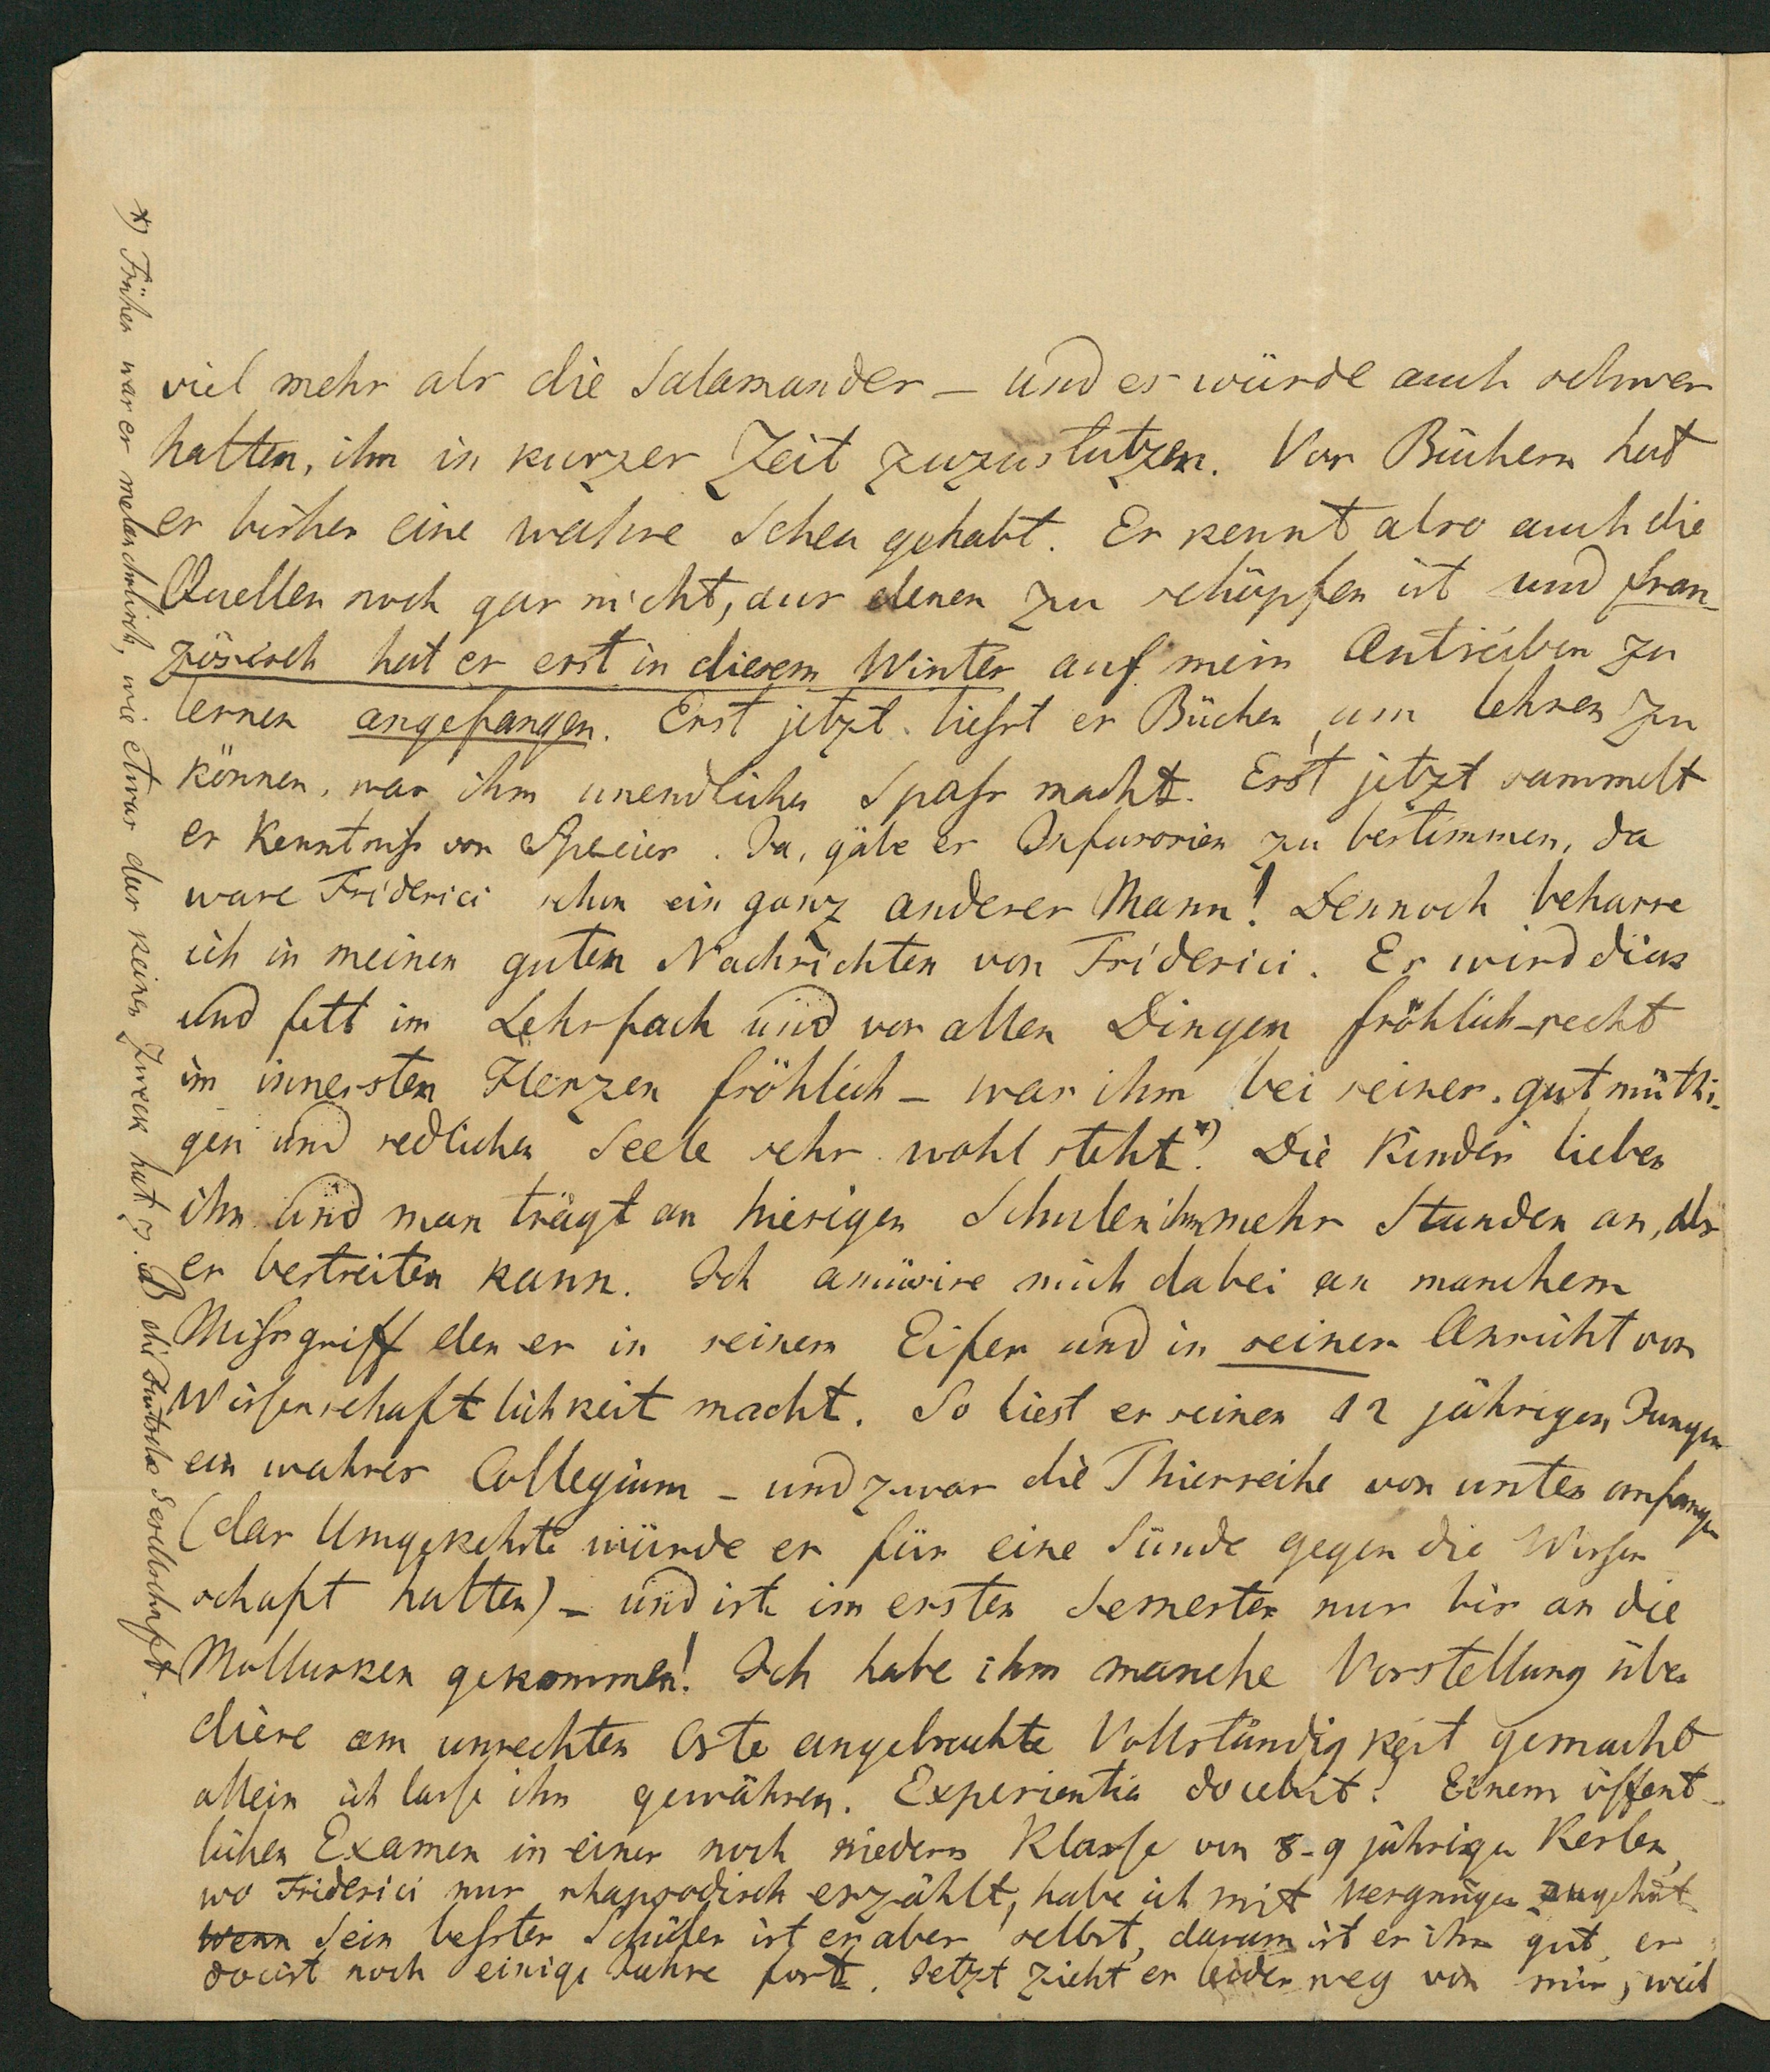 viel mehr als die Salamander – und es würde auch schwer
halten, ihn in kurzer Zeit zuzustutzen. Vor Büchern hat
er bisher eine wahre Scheu gehabt. Er kennt also auch die
Quellen noch gar nicht, aus denen zu schöpfen ist und fran-
zösisch hat er erst in diesem Winter auf mein Antreiben zu
lernen angefangen. Erst jetzt liesst er Bücher, um lehren zu
können, was ihm unendlichen Spass macht. Erst jetzt sammelt
er Kenntniss von Species. Ja, gäbe es Infusorien zu bestimmen, da
wäre Friderici schon ein ganz anderer Mann! Dennoch beharre
ich in meinen guten Nachrichten von Friderici. Er wird dick
und fett im Lehrfach und vor allen Dingen fröhlich – recht
im innersten Herzen fröhlich – was ihm bei seiner gutmüthi-
gen und redlichen Seele sehr wohl steht*). Die Kinder lieben
ihn und man trägt an hiesigen Schulen ihm mehr Stunden an, als
er bestreiten kann. Ich amüsire mich dabei an manchem
Missgriff den er in seinem Eifer und in seiner Ansicht von
Wissenschaftlichkeit macht. So liest er seinen 12 jährigen Jungen
ein wahres Collegium – und zwar die Thierreihe von unten anfangen
(das Umgekehrte würde er für eine Sünde gegen die Wissen
schaft halten) – und ist im ersten Semester nur bis an die
Mollusken gekommen! Ich habe ihm manche Vorstellung über
diese am unrechten Orte angebrachte Vollständigkeit gemacht
allein ich lasse ihn gewähren. Experientia docebit! Einem öffent-
lichen Examen in einer noch niedern Klasse von 8-9 jährigen Kerlen,
wo Friderici nur rhapsodisch erzählt, habe ich mit Vergnügen zugehört
Wenn Sein bester Schüler ist er aber selbst, darum ist es ihm gut, er
docirt noch einige Jahre fort. Jetzt zieht er leider weg von mir, weil
*) Früher war er melancholisch, wie etwas das keinen Zweck hat z. B. die deutsche Gesellschaft.